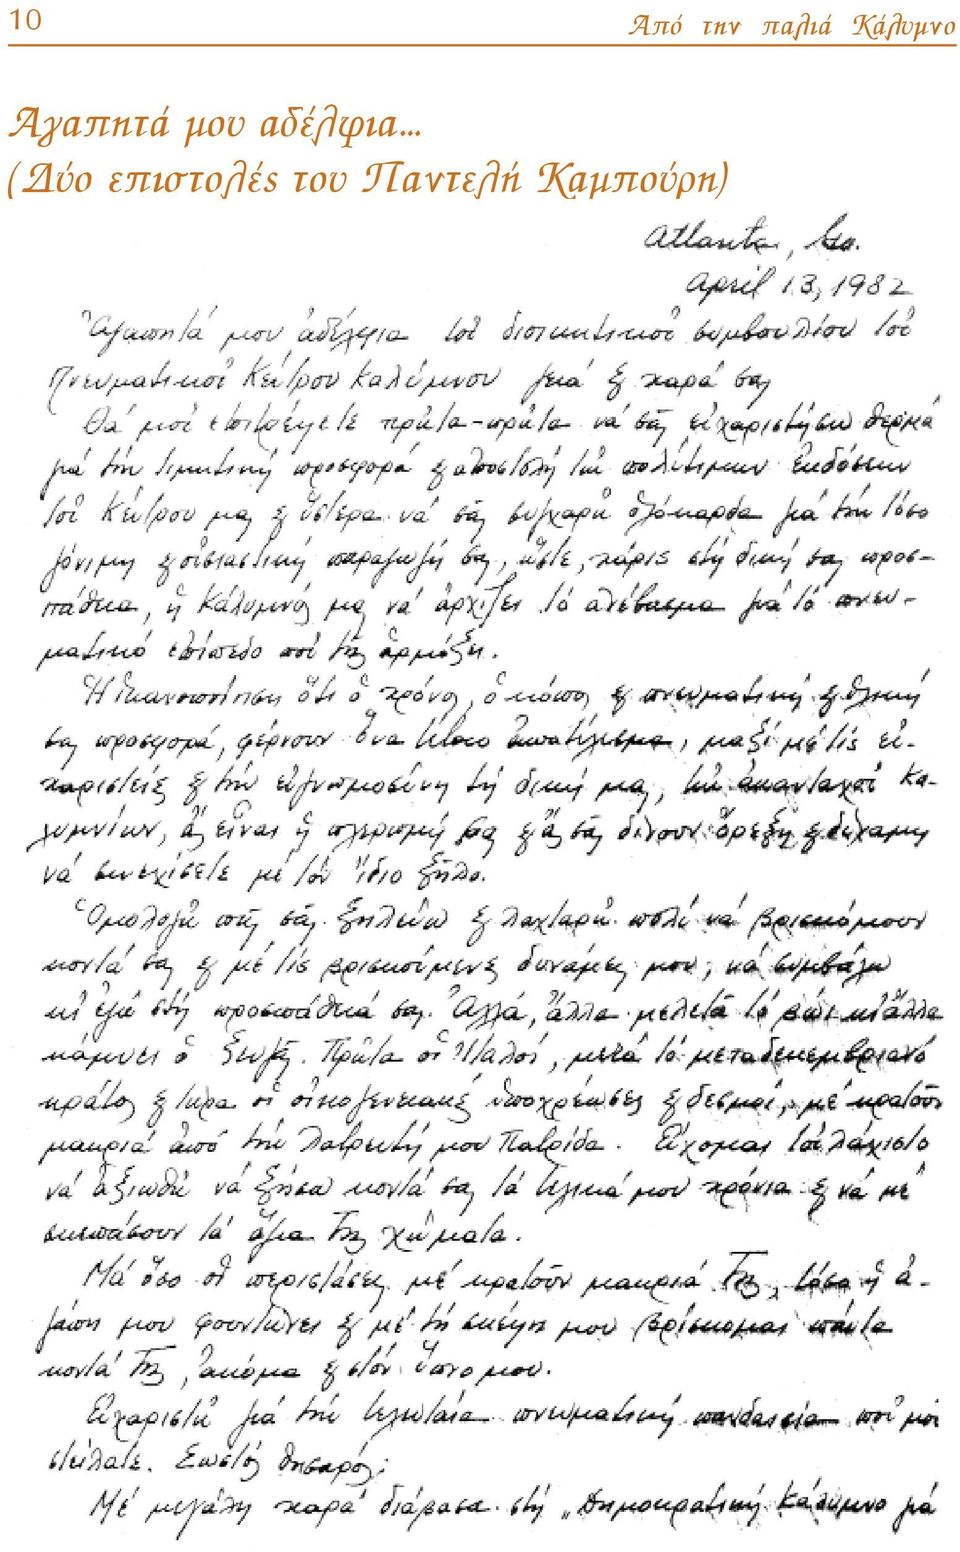 10
Από την παλιά Κάλυμνο
Αγαπητά μου αδέλφια...
(Δύο επιστολές του Παντελή Καμπούρη)
Atlanta, Ga.
April 13, 1982
Ἀγαπητά μου ἀδέλφια τοῦ διοικητικοῦ συμβουλίου τοῦ
Πνευματικοῦ Κέντρου Καλύμνου γειά & χαρά σας
Θά μοῦ ἐπιτρέψετε πρῶτα-πρῶτα νά σᾶς εὐχαριστήσω θερμά
γιά τήν τιμητική προσφορά & ἀποστολή τῶν πολύτιμων ἐκδόσεων
τοῦ Κέντρου μας & ὕστερα νά σᾶς συγχαρῶ ὁλόκαρδα γιά τήν τόσο
γόνιμη & οὐσιαστική παραγωγή σας, ὥστε, χάρις στή δική σας προσ-
πάθεια, ἡ Κάλυμνός μας νά ἀρχίζει τό ἀνέβασμα γιά τό πνευ-
ματικό ἐπίπεδο πού τῆς ἁρμόζει.
Ἡ ἱκανοποίηση ὅτι ὁ χρόνος, ὁ κόπος & πνευματική & ὑλική
σας προσφορά, φέρνουν ἕνα τέτοιο ἀποτέλεσμα, μαζί μέ τίς εὐ-
χαριστίες & τήν εὐγνωμοσύνη τή δική μας, τῶν ἁπανταχοῦ Κα-
λυμνίων, ἄς εἶναι ἡ πληρωμή σας & ἄς σᾶς δίνουν ὄρεξη & δύναμη
νά συνεχίσετε μέ τόν ἴδιο ζῆλο.
Ὁμολογῶ πώς σᾶς ζηλεύω & λαχταρῶ πολύ νά βρισκόμουν
κοντά σας & μέ τίς βρισκούμενες δυνάμεις μου, νά συμβάλω
κι ἐγώ στή προσπάθειά σας. Ἀλλά, ἄλλα μελετᾶ τό βώδι κι ἄλλα
κάμνει ὁ ζευγᾶς. Πρῶτα οἱ Ἰταλοί, μετά τό μεταδεκεμβριανό
κράτος & τώρα οἱ οἰκογενειακές ὑποχρέωσες & δεσμοί, μέ κρατοῦν
μακριά ἀπό τήν λατρευτή μου Πατρίδα. Εὔχομαι τοὐλάχιστο
νά ἀξιωθῶ νά ζήσω κοντά σας τά τελικά μου χρόνια & νά μέ
σκεπάσουν τά ἅγια Της χώματα.
Μά ὅσο οἱ περιστάσεις μέ κρατοῦν μακριά Της, τόσο ἡ ἀ-
γάπη μου φουντώνει & μέ τή σκέψη μου βρίσκομαι πάντα
κοντά Της, ἀκόμα & στόν ὕπνο μου.
Εὐχαριστῶ γιά τήν τελευταία πνευματική πανδαισία πού μοῦ
στείλατε. Σωστός θησαρός!
Μέ μεγάλη χαρά διάβασα στή „Δημοκρατική Κάλυμνο γιά